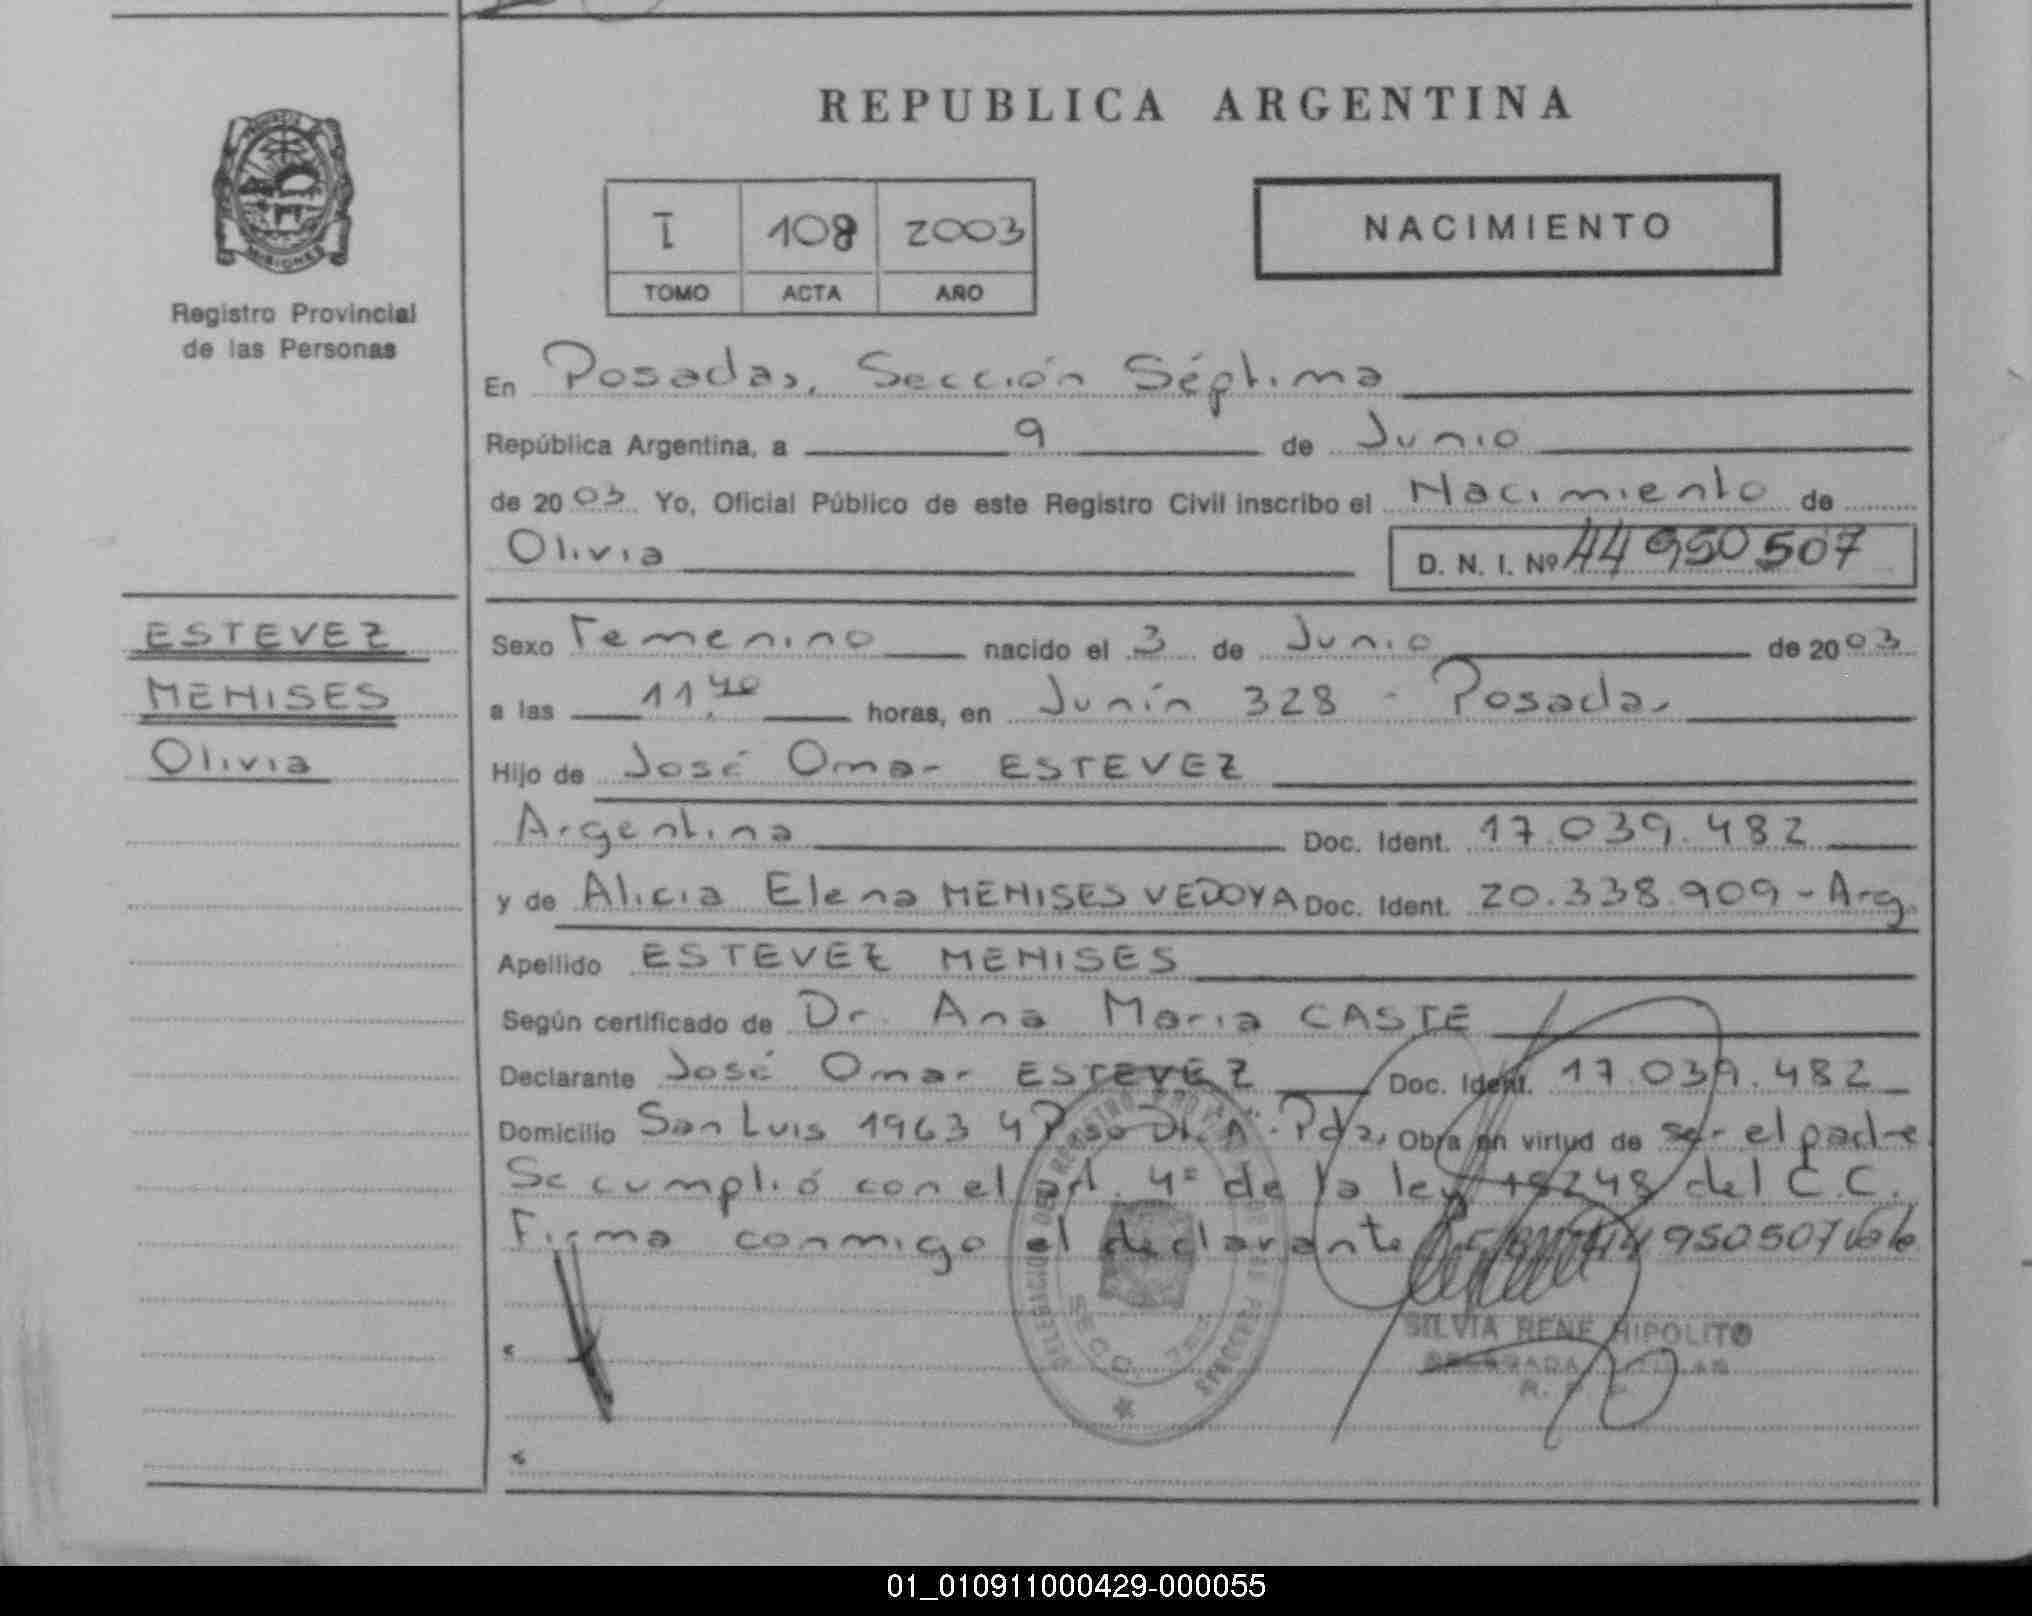 REPUBLICA ARGENTINA
PROVINCIA
MISIONES
Registro Provincial
de las Personas
I 108 2003
TOMO ACTA AÑO
NACIMIENTO
En Posadas, Sección Séptima
República Argentina, a 9 de Junio
de 2003 Yo, Oficial Público de este Registro Civil inscribo el Nacimiento de
Olivia D. N. I. Nº 44950507
ESTEVEZ
MENISES
Olivia
Sexo Femenino nacido el 3 de Junio de 2003
a las 11,40 horas, en Junín 328 - Posadas
Hijo de José Omar ESTEVEZ
Argentina Doc. Ident. 17.039.482
y de Alicia Elena MENISES VEDOYA Doc. Ident. 20.338.909 - Arg.
Apellido ESTEVEZ MENISES
Según certificado de Dr. Ana Maria CASTE
Declarante José Omar ESTEVEZ Doc. Ident. 17.039.482
Domicilio San Luis 1963 4 Piso Dt. A - Pdas, Obra en virtud de ser el padre
Se cumplió con el art. 4º de la ley 18248 del C.C.
Firma conmigo el declarante 44950507 Vale
SILVIA RENE HIPOLITO
01_010911000429-000055